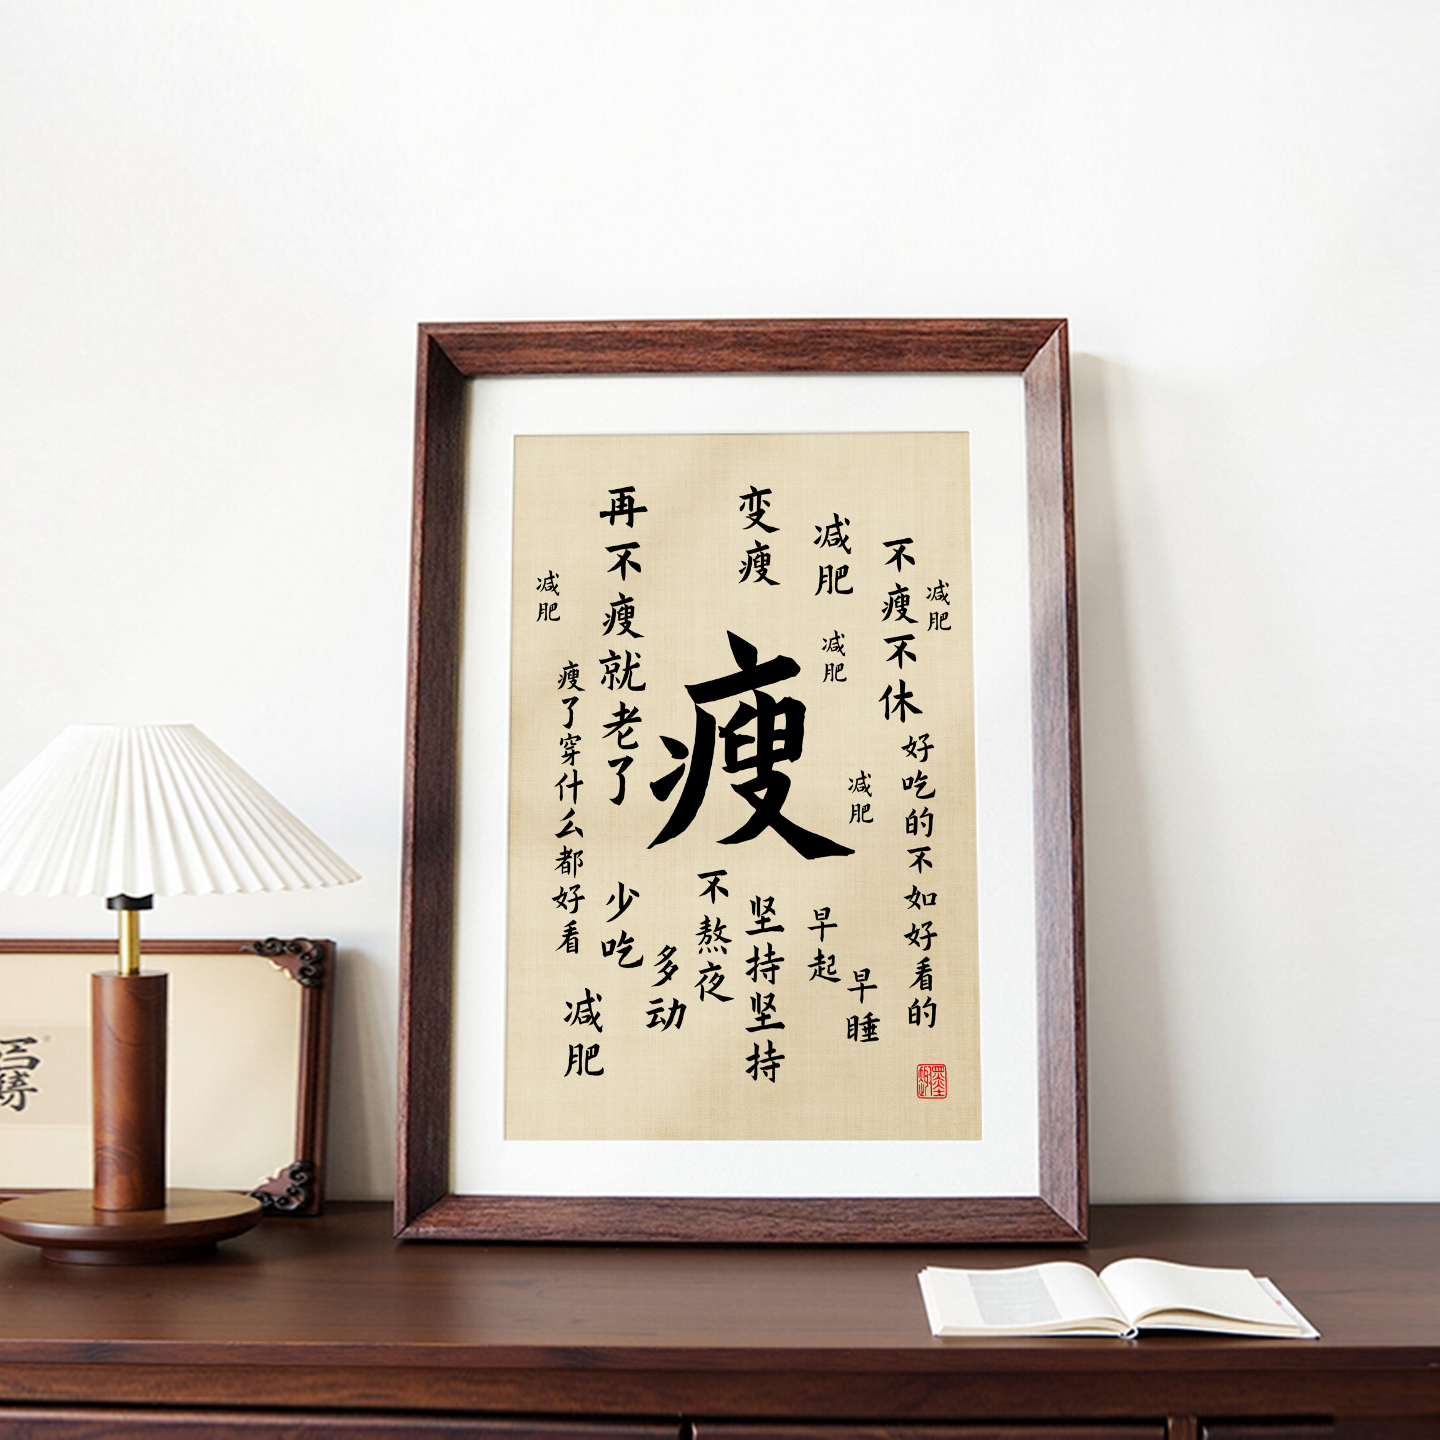 减肥
不瘦不休
好吃的不如好看的
减肥
减肥
减肥
早睡
早起
变瘦
瘦
坚持坚持
不熬夜
多动
再不瘦就老了
少吃
减肥
瘦了穿什么都好看
减肥